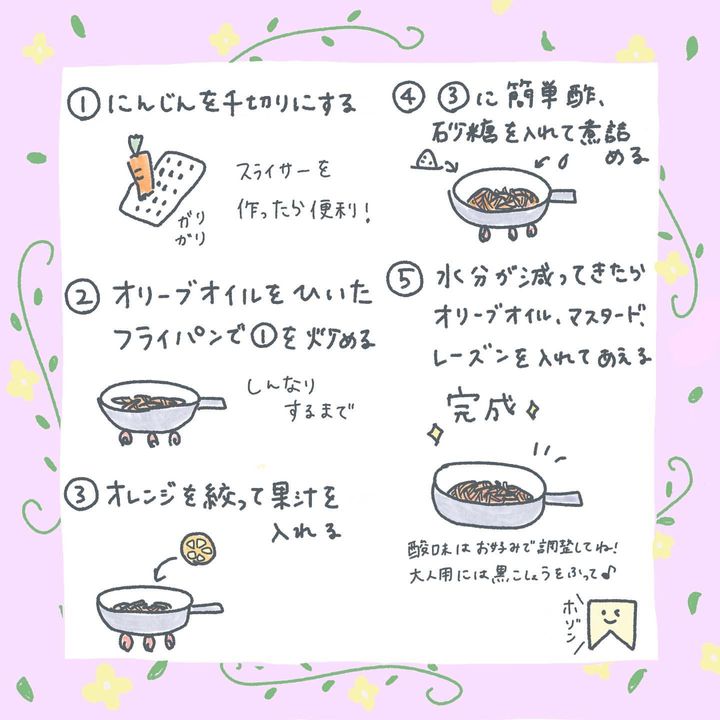 ① にんじんを千切りにする
スライサーを
作ったら便利！
ガリ
ガリ
② オリーブオイルをひいた
フライパンで①を炒める
しんなり
するまで
③ オレンジを絞って果汁を
入れる
④ ③に簡単酢、
砂糖を入れて煮詰
める
⑤ 水分が減ってきたら
オリーブオイル、マスタード、
レーズンを入れてあえる
完成
酸味はお好みで調整してね！
大人用には黒こしょうをふって♪
ホゾン